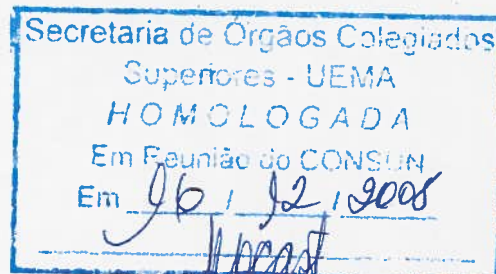 Secretaria de Órgãos Colegiados
Superiores - UEMA
HOMOLOGADA
Em Reunião do CONSUN
Em 16 / 12 / 2008